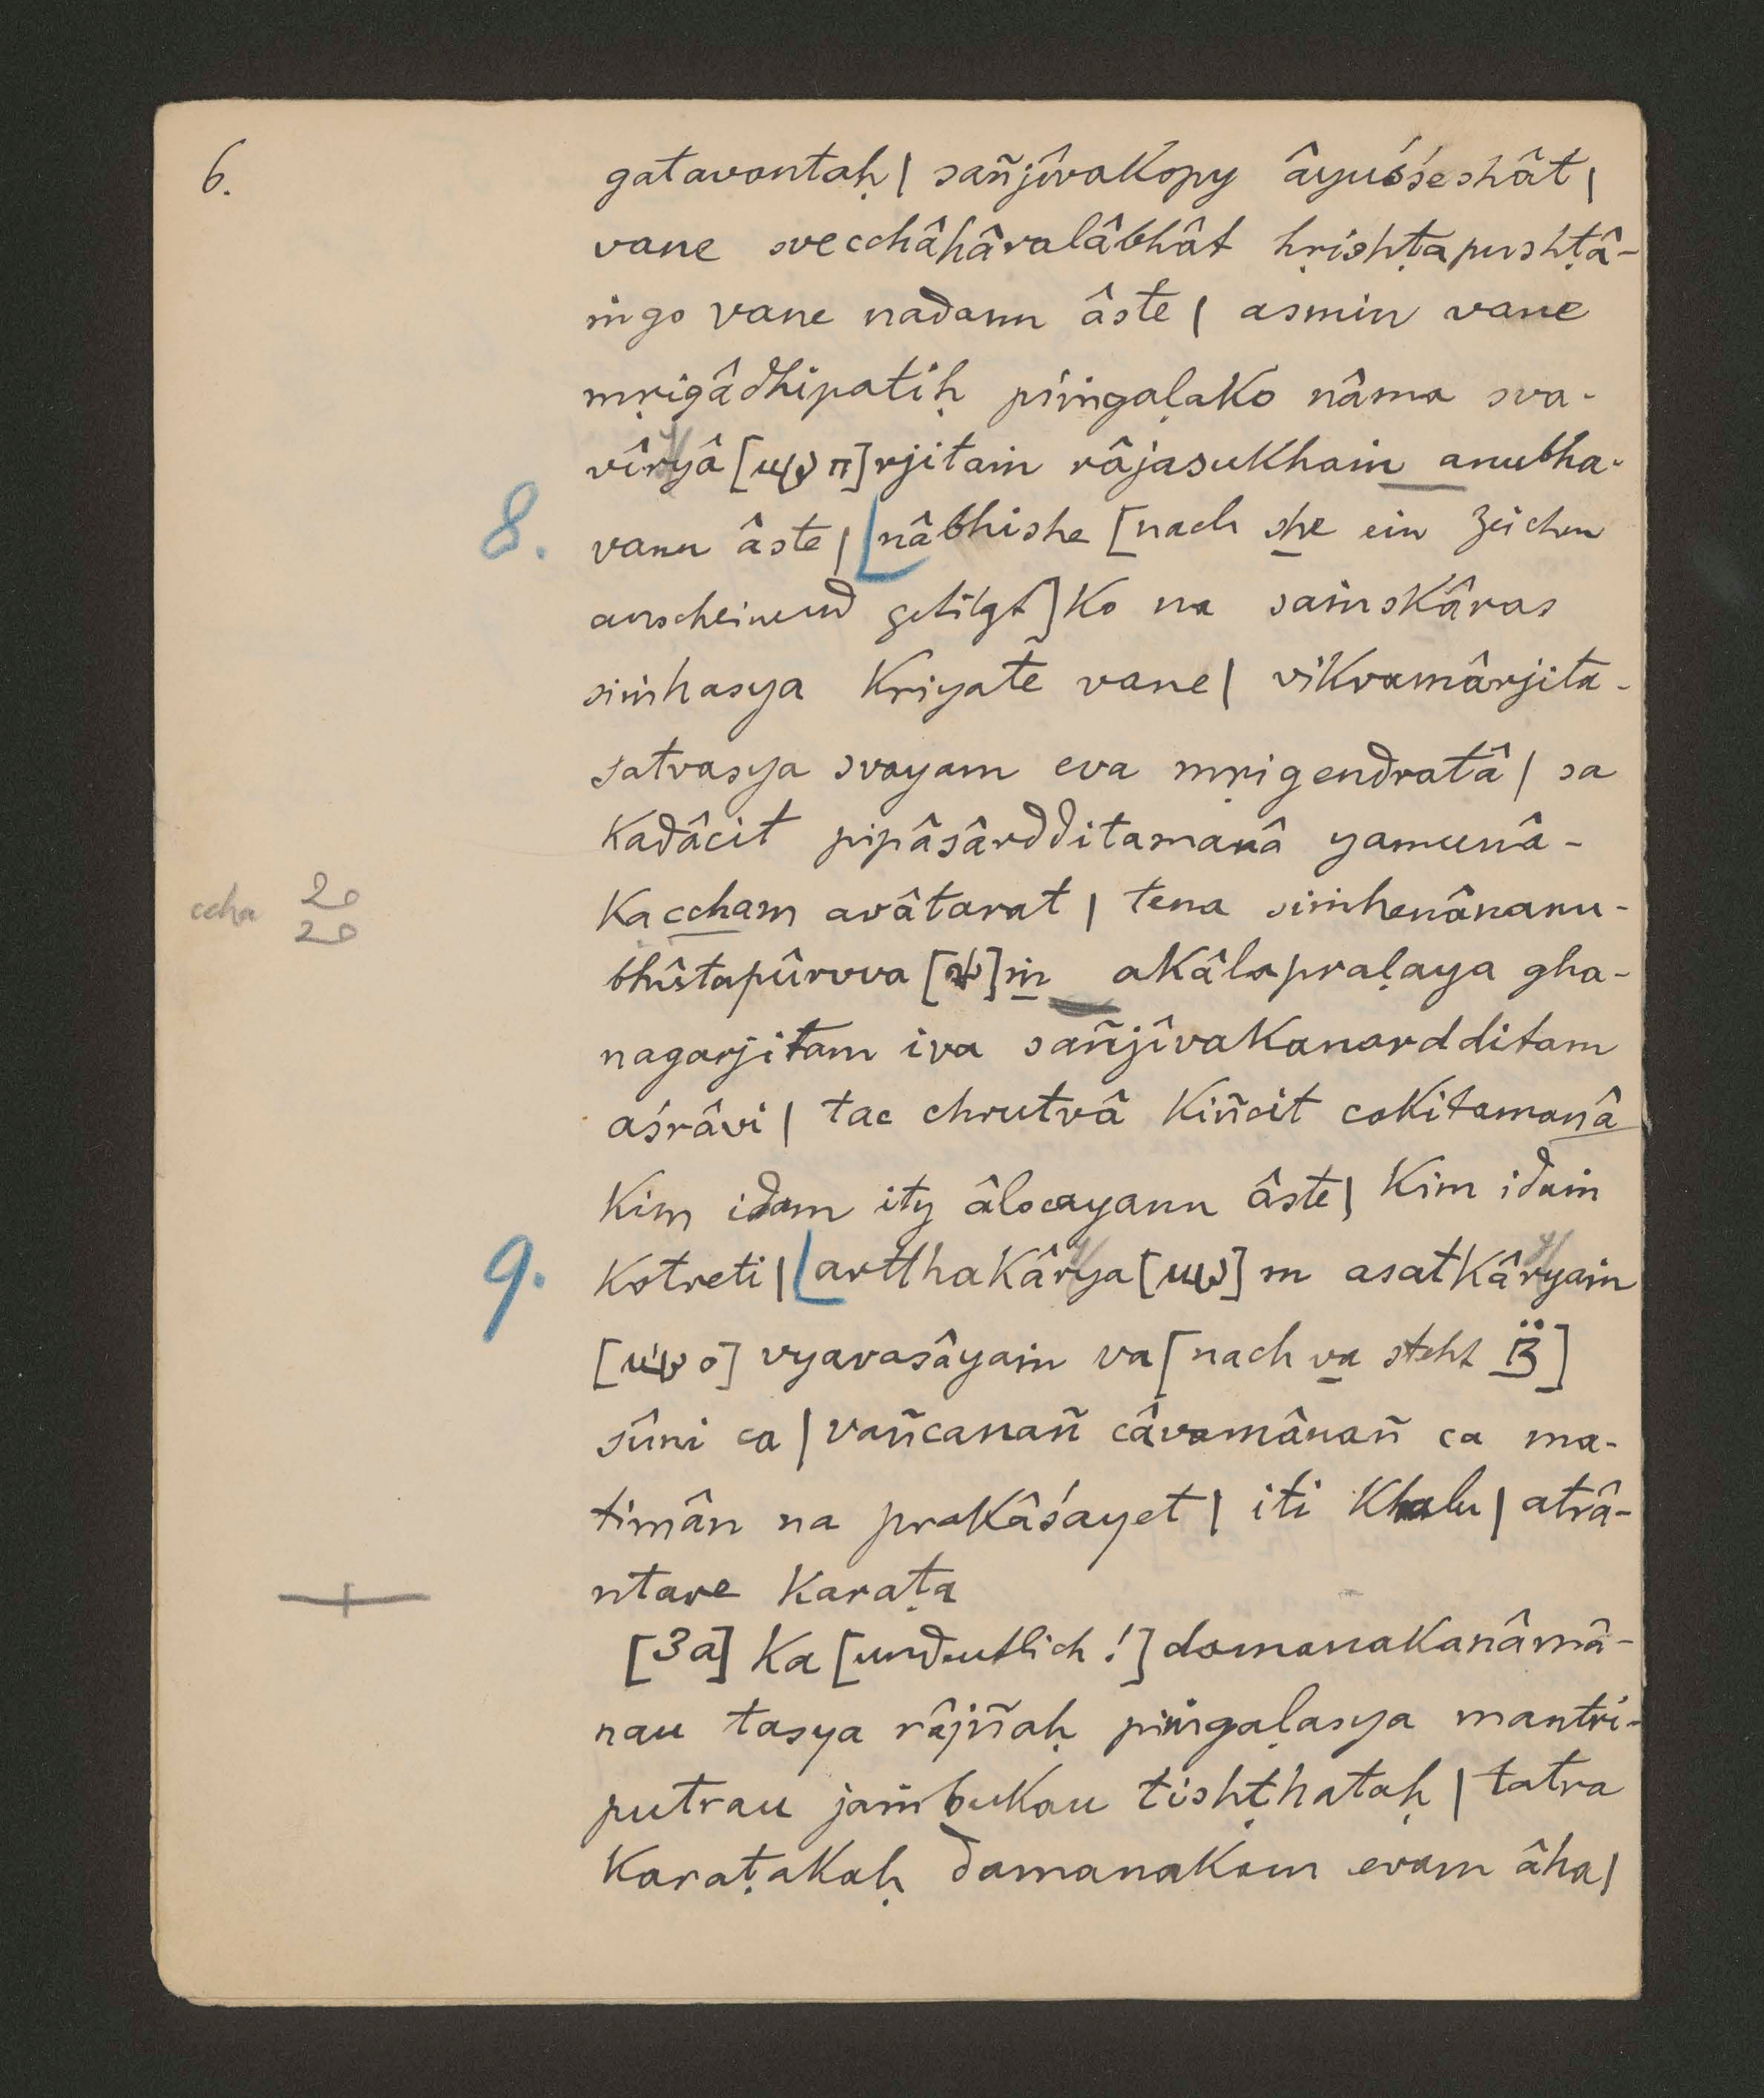 6.
gatavantaḥ | sañjîvakopy âyuśśeshât |
vane svecchâhâralâbhât hṛishṭapushṭâ-
ṅgo vane nadann âste | asmin vane
mṛigâdhipatiḥ piṅgaḷako nâma sva-
vîryâ []rjitaṁ râjasukhaṁ anubha-
8. vann âste | nâbhishe [nach she ein Zeichen
anscheinend getilgt] ko na saṁskâras
siṁhasya kriyate vane | vikramârjita-
satvasya svayam eva mṛigendratâ | sa
kadâcit pipâsârdditamanâ yamunâ-
ccha
kaccham avâtarat | tena siṁhenânanu-
bhûtapûrvva []ṁ akâlapraḷaya gha-
nagarjitam iva sañjîvakanardditam
aśrâvi | tac chrutvâ kiñcit cakitamanâ
kim idam ity âlocayann âste | kim idaṁ
9. kotreti | artthakârya []m asatkâryaṁ
[] vyavasâyaṁ va [nach va steht ]
sûni ca | vañcanañ câvamânañ ca ma-
timân na prakâśayet | iti khalu | atrâ-
ntare karaṭa
[3a] ka [undeutlich!] damanakanâmâ-
nau tasya râjñaḥ piṅgaḷasya mantri-
putrau jaṁbukau tishṭhataḥ | tatra
karaṭakaḥ damanakam evam âha |